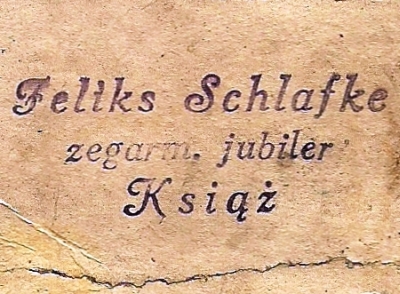 Feliks Schlafke
zegarm. jubiler
Książ